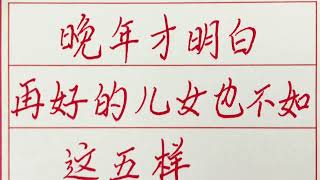 晚年才明白
再好的儿女也不如
这五样